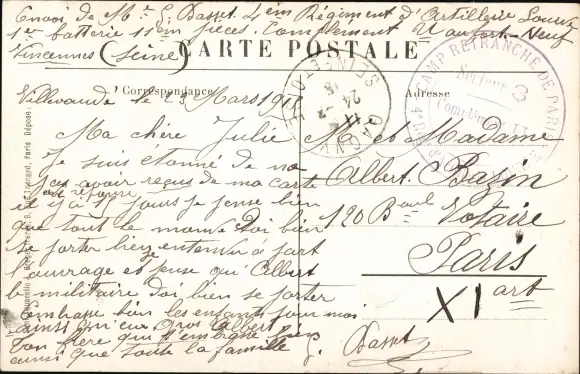 Envoi de Mr G. Dasset. 4em Régiment d'Artillerie Lourde
1er batterie 11em pièces. Complément au fort Neuf
Vincennes (Seine)
CARTE POSTALE
Correspondance
Adresse
Villevaudé le 23 Mars 1918
Ma chère Julie
Je suis étonné de na
pas avoir reçus de ma carte
réponse
il y a 5 jours je pense bien
que tout le monde doi bien
se porter bien entendu à part
l'ouvrage et je pense qu'Albert
le militaire doi bien se porter
embrasse bien les enfants pour moi
ainsi qu'eux gros Albert
Ton frère qui t'embrasse bien
ainsi que toute la famille
G. Dasset
Mr et Madame
Albert Bazin
120 Boul Voltaire
Paris
XI art
CAMP RETRANCHÉ DE PARIS
Secteur 3
Complément
GAGNY
SEINE-ET-OISE
24
Paris Déposé